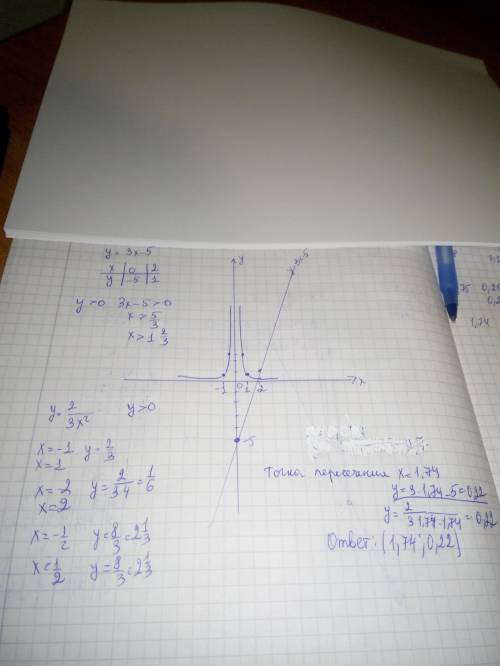 y = 3x-5
x | 0 | 2
y | -5 | 1
y>0 3x-5>0
x > 5/3
x > 1 2/3
y = 2/3x² y>0
x = -1 y = 2/3
x = 1
x = -2 y = 2/3·4 = 1/6
x = 2
x = -1/2 y = 8/3 = 2 1/3
x = 1/2 y = 8/3 = 2 1/3
y
y=3x-5
-1 0 1 2 x
-5
Точка пересечения x = 1,74
y = 3·1,74-5=0,22
y = 2/3·1,74·1,74 = 0,22
Ответ: (1,74; 0,22)
75 0,25
1,74